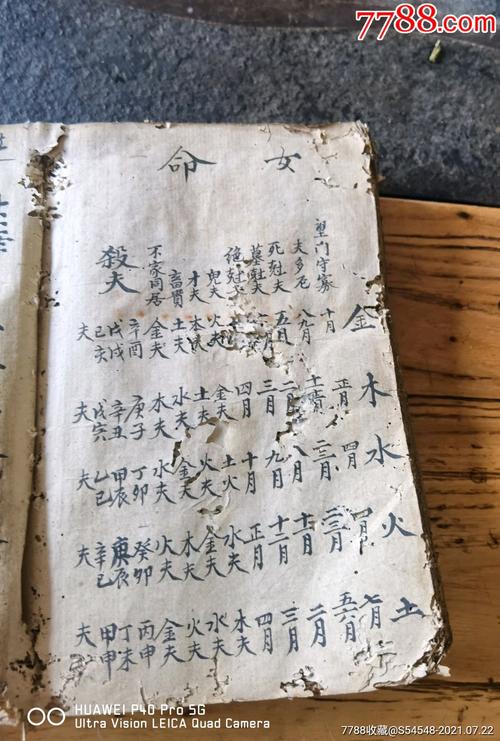 7788.com
女命
金 木 水 火 土
望門守寡 十月 正月 四月 四月 七月
夫多厄 八九月 二三月 二三月 五六月
死尅夫 五月 二月 八月 十月 二月
墓尅夫 三月 九月 十二月 三月
絕尅夫 四月 十月 正月 四月
鬼夫 火夫 金夫 土火 水夫 木夫
才夫 木夫 土夫 火夫 金夫 水夫
富貴 土夫 水夫 金夫 木夫 火夫
不家同居 金夫 木夫 水夫 火夫 金夫
殺夫
辛酉 庚子 丁卯 癸卯 丙申
戊戌 辛丑 甲辰 庚辰 丁未
己亥 戊寅 乙巳 辛巳 甲申
夫 夫 夫 夫 夫
HUAWEI P40 Pro 5G
Ultra Vision LEICA Quad Camera
7788收藏@S54548-2021.07.22